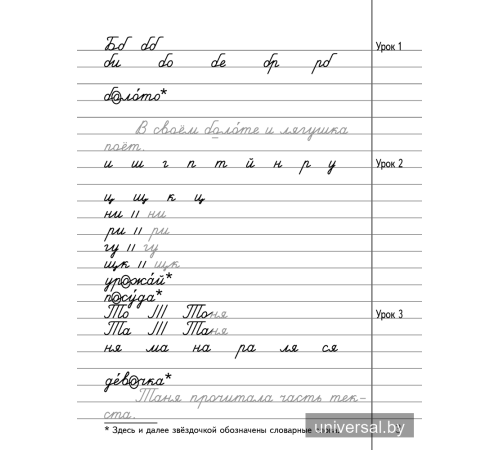 Бб бб Урок 1
би бо бе бр рб
боло́то*
В своём боло́те и лягушка
поёт.
и ш г п т й н р у Урок 2
ц щ к ц
ни // ни
ри // ри
гу // гу
щк // щк
урожа́й*
посу́да*
То /// Тоня Урок 3
Та /// Таня
ня ма на ра ля ся
де́вочка*
Таня прочитала часть тек-
ста.
* Здесь и далее звёздочкой обозначены словарные
universal.by